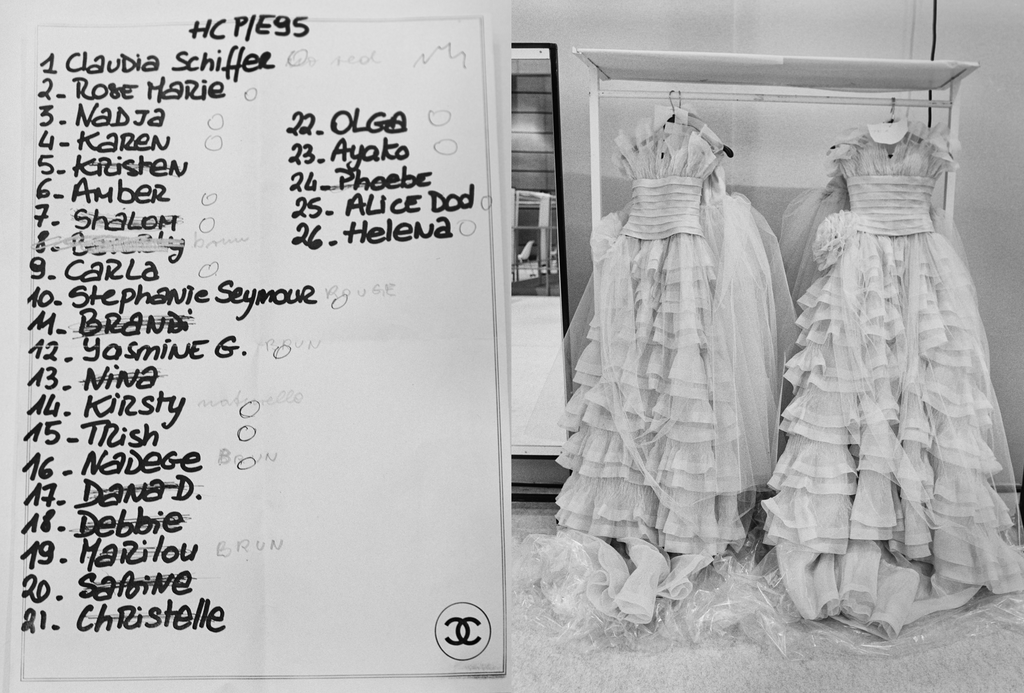 HC P/E95
1 Claudia Schiffer red
2- ROSE MARIE
3- NADJA
4- KAREN
5- Kristen
6- AMBER
7- SHALOM
8- brun
9- CARLA
10- Stephanie Seymour ROUGE
11- BRANDI
12- YASMINE G. BRUN
13- NINA
14- Kirsty naturelle
15- TRish
16- NADEGE BRUN
17- DANA D.
18- Debbie
19- MARilou BRUN
20- SABINE
21- Christelle
22- OLGA
23- Ayako
24- Phoebe
25- ALICE DOD
26- HELENA